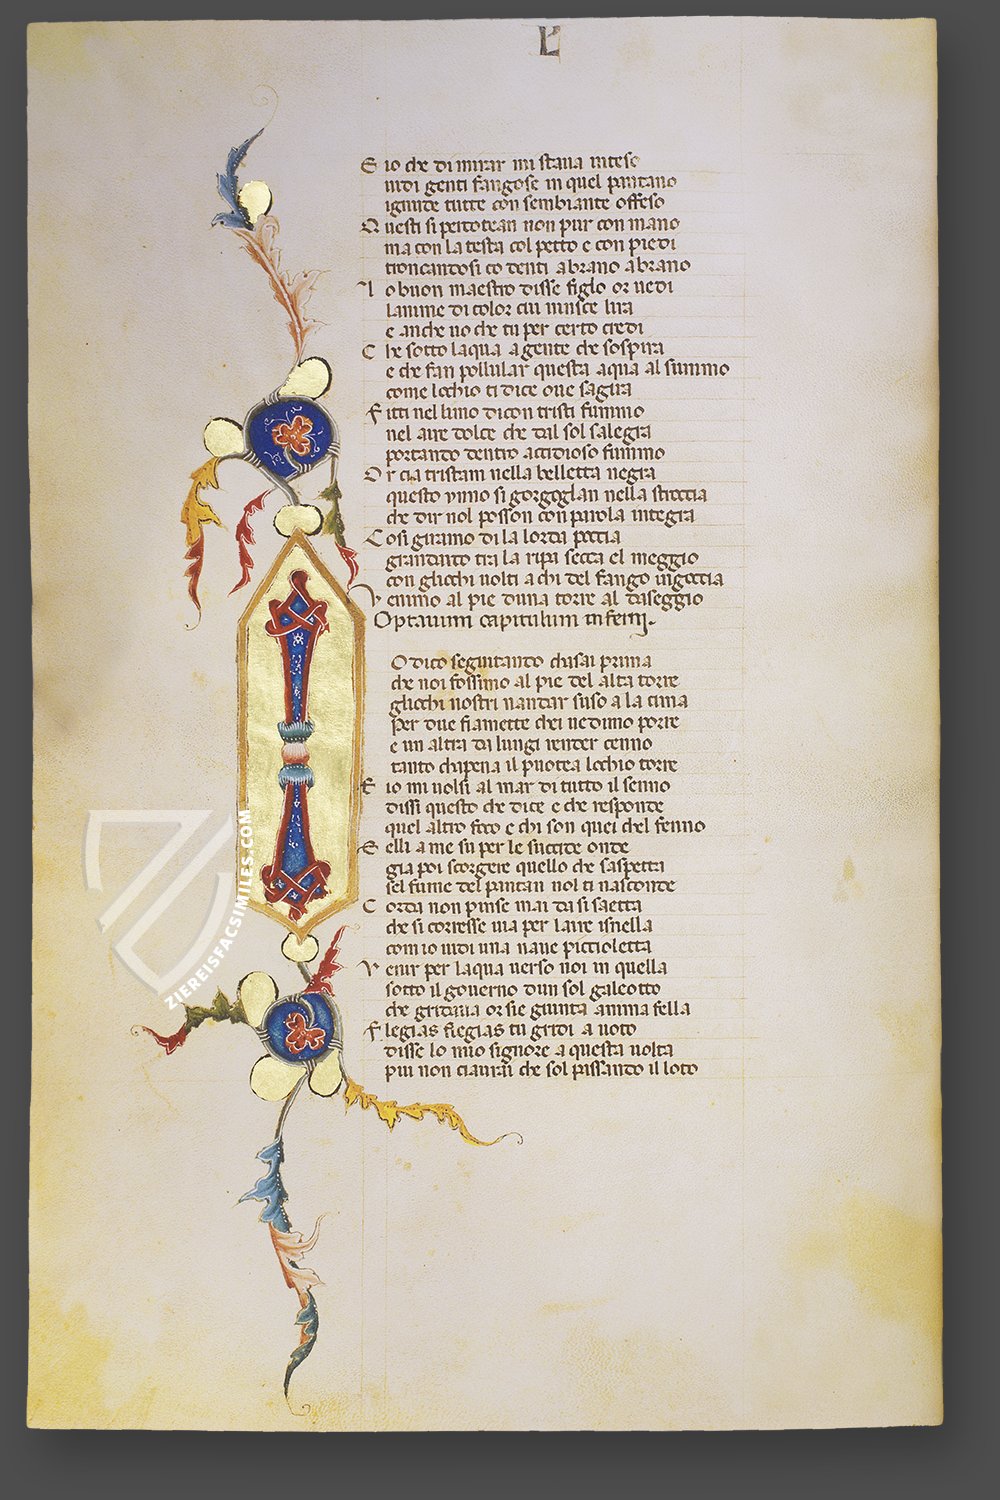 E io che di mirar mi staua inteso
uidi genti fangose in quel pantano
ignude tutte con sembiante offeso
Questi si percotean non pur con mano
ma con la testa col petto e con piedi
troncandosi co denti a brano a brano
Lo buon maestro disse figlo or uedi
lanime di color cui uinse lira
e anche uo che tu per certo credi
Che sotto laqua a gente che sospira
e che fan pollular questa aqua al summo
come lochio ti dice oue sagira
Fitti nel limo dicon tristi fummo
nel aire dolce che dal sol salegra
portando dentro accidioso fummo
Or cia tristam nella belletta negra
questo ynno si gorgoglan nella stroccia
che dir nol posson con parola integra
Cosi giramo di la lorda poccia
grandarco tra la ripa secca el meggio
con gliocchi uolti a chi del fango ingoccia
Venimo al pie duna torre al daseggio
Optauum capitulum inferni.
O dico seguitando chasai prima
che noi fossimo al pie del alta torre
gliocchi nostri nandar suso a la cima
Per due fiamette chei uedimo porre
e un altra da lungi render cenno
tanto chapena il puotea lochio torre
E io mi uolsi al mar di tutto il senno
dissi questo che dice e che risponde
quel altro foco e chi son quei chel fenno
E elli a me su per le succide onde
gia poi scorgere quello che saspetta
sel fume del pantan nol ti nasconde
Corda non pinse mai da si saetta
che si coresse uia per laire isnella
com io uidi una naue piccioletta
Venir per laqua uerso noi in quella
sotto il gouerno dun sol galeotto
che gridaua or sie giunta anima fella
Flegias flegias tu gridi a uoto
disse lo mio signore a questa uolta
piu non ciaurai che sol passando il loto
ZIEREISFACSIMILES.COM